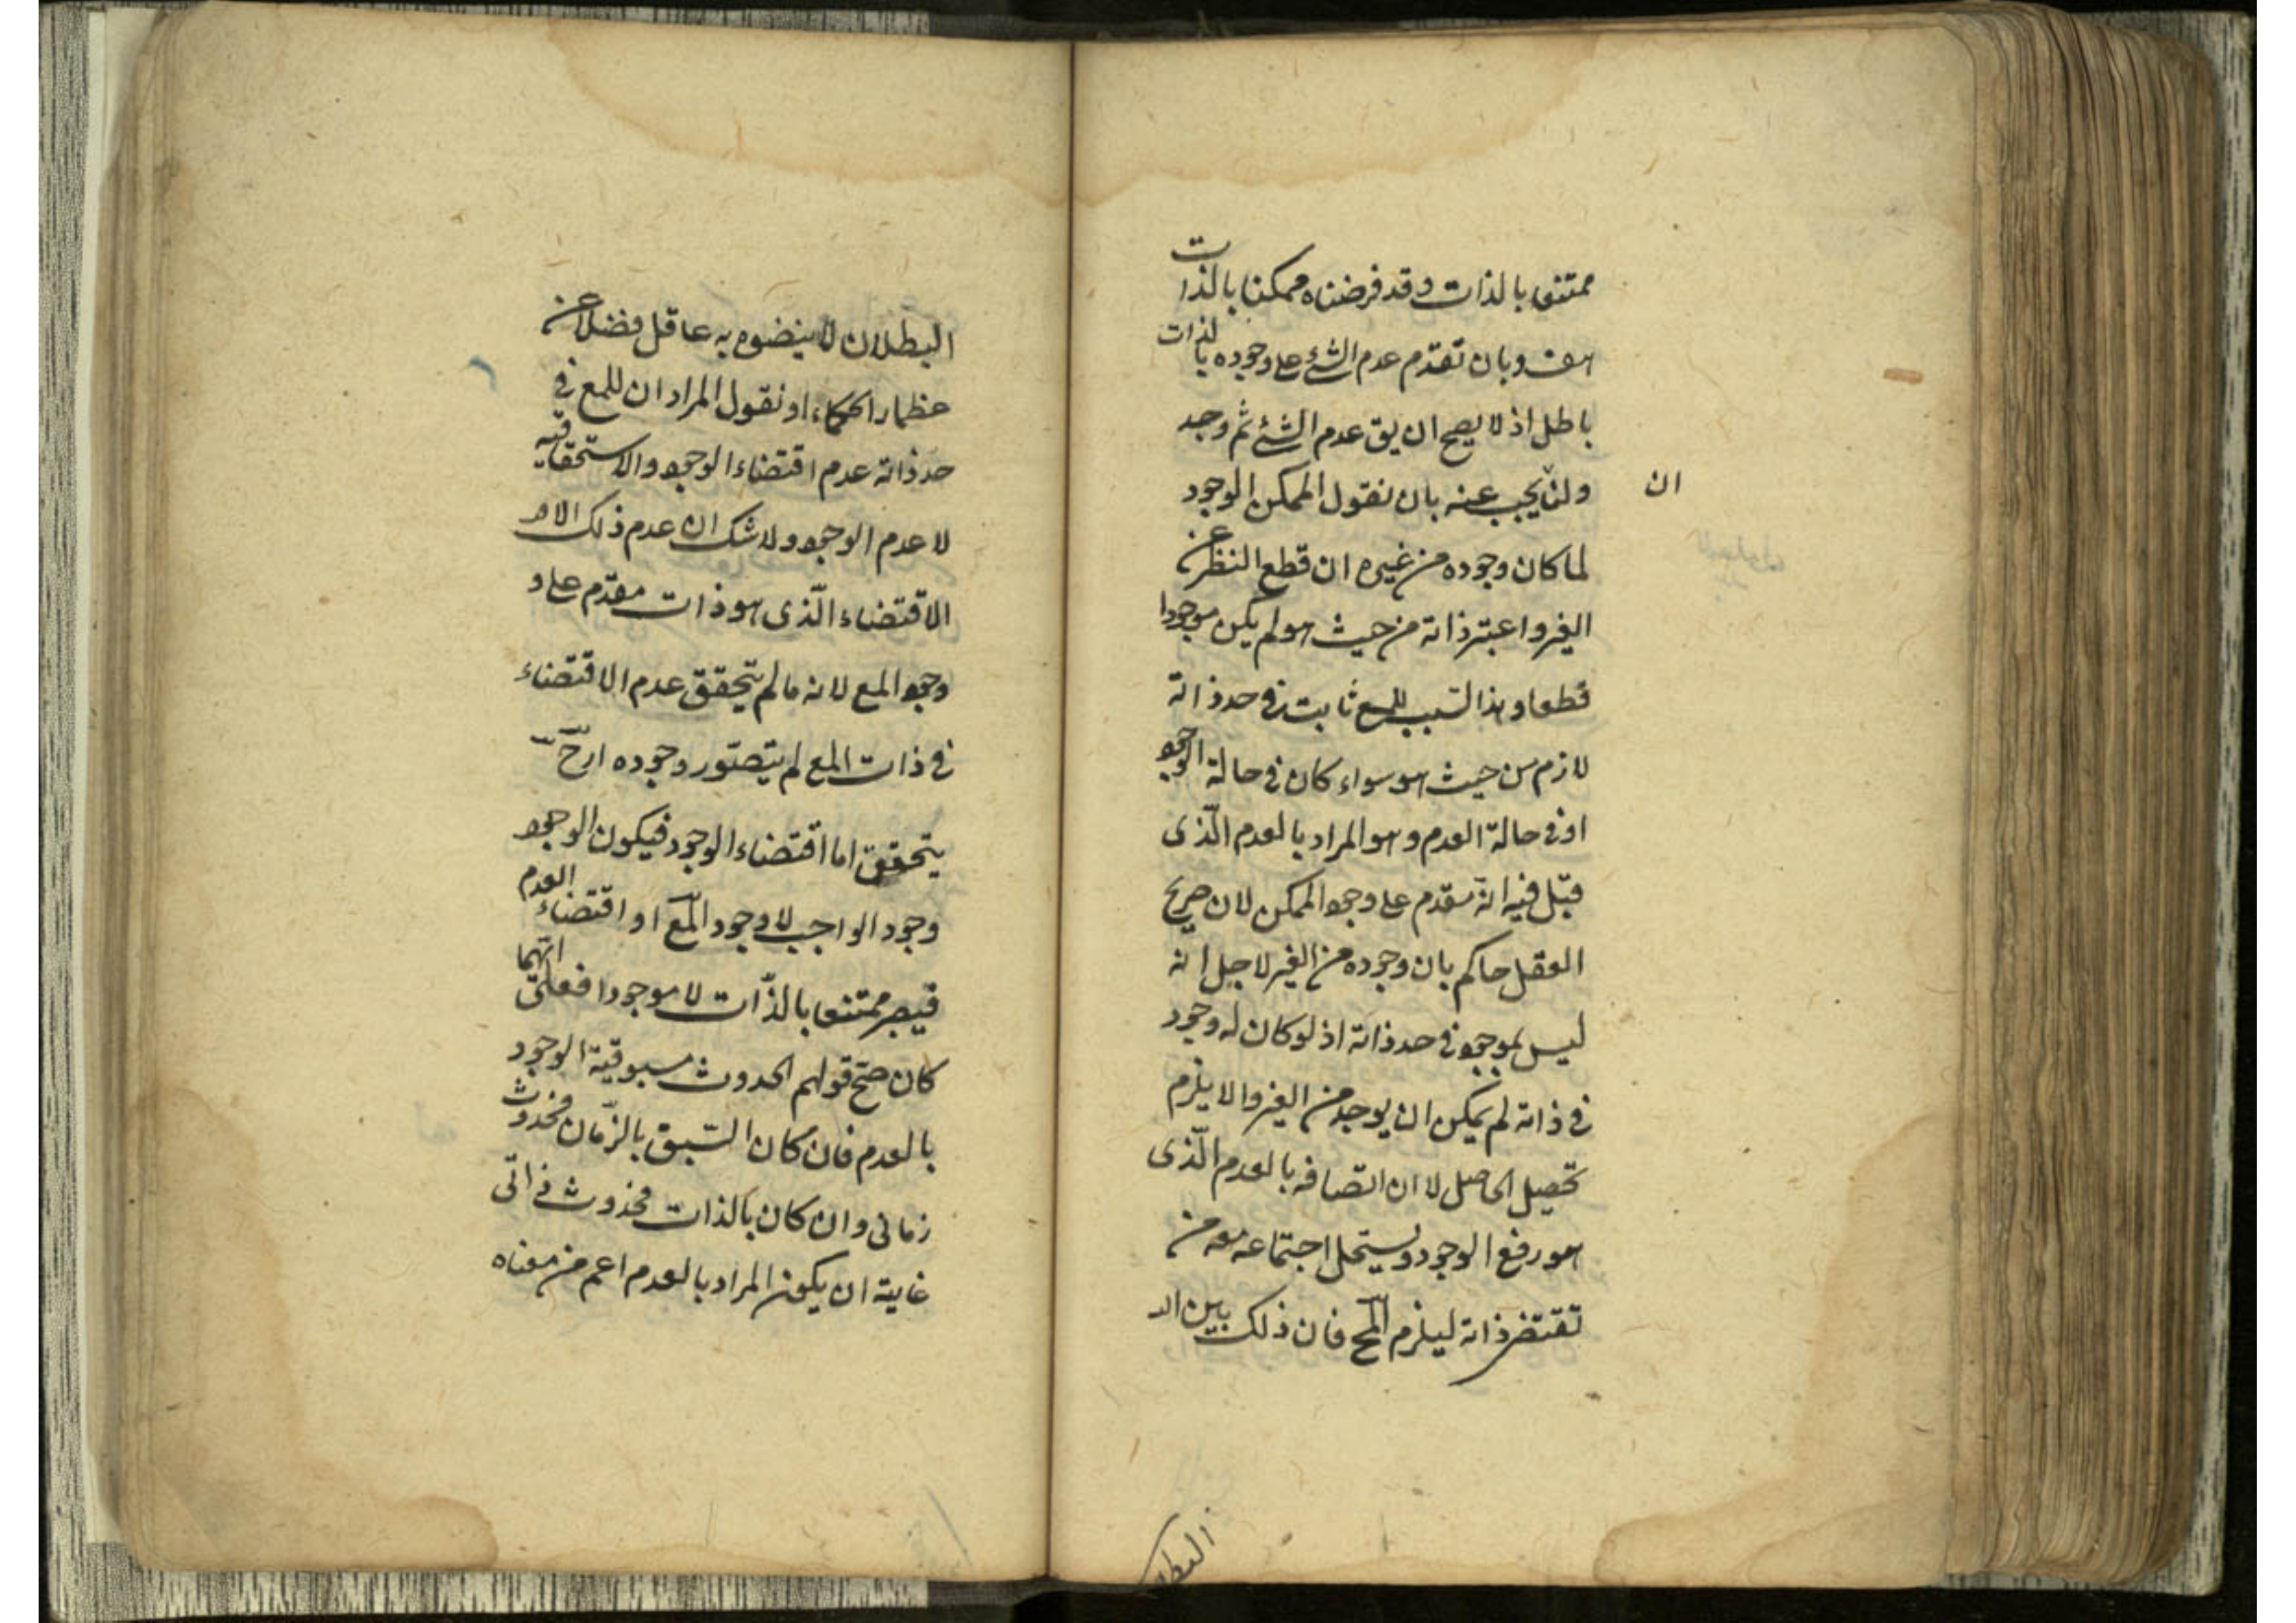 ممتنعا بالذات وقد فرضناه ممكنا بالذات
هف وبان تقدم عدم الشئ على وجوده بالذات
باطل اذ لا يصح ان يق عدم الشئ ثم وجد
ولنا يجيب عنه بان نقول الممكن الوجود
ان
لما كان وجوده من غيره ان قطع النظر عن
الغير واعتبر ذاته من حيث هو لم يكن موجودا
قطعا وهذا السبب للمع ثابت في حد ذاته
لازم من حيث هو سواء كان في حالة الوجود
او في حالة العدم وهو المراد بالعدم الّذى
قيل فيه انه مقدم على وجود الممكن لان صريح
العقل حاكم بان وجوده من الغير لاجل انه
ليس بموجود في حد ذاته اذ لو كان له وجود
في ذاته لم يمكن ان يوجد من الغير والا يلزم
تحصيل الحاصل لا ان اتصافه بالعدم الّذى
هو رفع الوجود ويستحيل اجتماعه معه من
تقتضى ذاته ليلزم المح فان ذلك بين الـ
البطلا
البطلان لا يتفوه به عاقل فضلا عن
عظماء الحكماء او نقول المراد ان للمع في
حد ذاته عدم اقتضاء الوجود والاستحقاقية
لا عدم الوجود ولا شك ان عدم ذلك الامر
الاقتضاء الّذى هو ذات مقدّم على و
وجود المع لانه ما لم يتحقق عدم الاقتضاء
في ذات المع لم يتصوّر وجوده اذ ح
يتحقق اما اقتضاء الوجود فيكون الوجود
وجود الواجب لا وجود المع او اقتضاء العدم
فيصير ممتنعا بالذّات لا موجودا فعلى ايّهما
كان صحّ قولهم الحدوث مسبوقية الوجود
بالعدم فان كان السّبق بالزّمان فحدوث
زمانى وان كان بالذات فحدوث ذاتّى
غايته ان يكون المراد بالعدم اعم من معناه